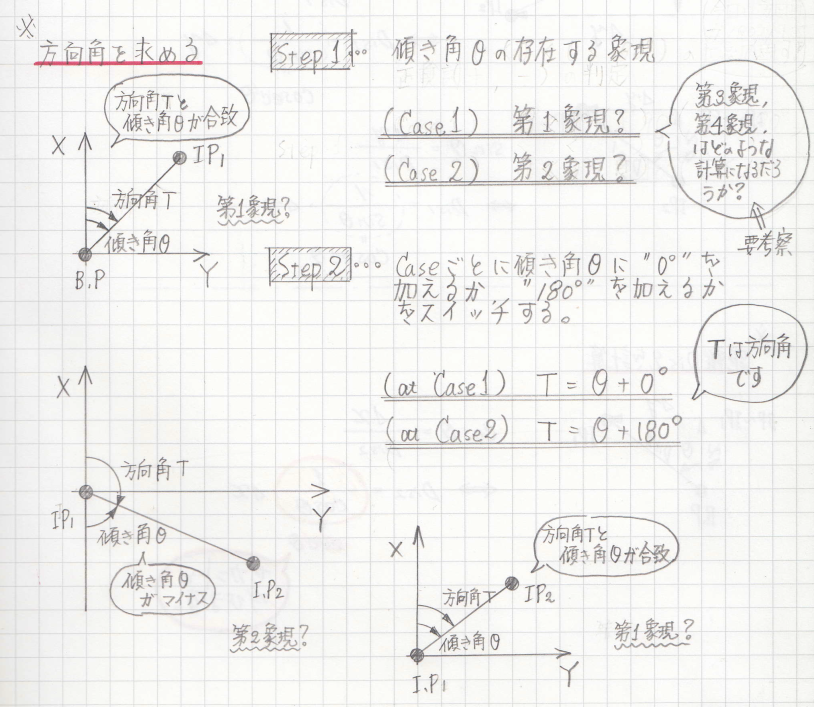 ※
方向角を求める
Step 1 … 傾き角θの存在する象現
方向角Tと
傾き角θが合致
X
IP₁
方向角T
傾き角θ
第1象現?
Y
B.P
(Case 1) 第1象現?
(Case 2) 第2象現?
第3象現,
第4象現,
はどのような
計算になるだろ
うか?
要考察
Step 2 … Caseごとに傾き角θに"0°"を
加えるか, "180°"を加えるか
をスイッチする。
Tは方向角
です
(at Case1) T = θ + 0°
(at Case2) T = θ + 180°
X
方向角T
IP₁
Y
傾き角θ
傾き角θ
がマイナス
I.P₂
第2象現?
X
方向角Tと
傾き角θが合致
方向角T
IP₂
傾き角θ
第1象現?
Y
I.P₁